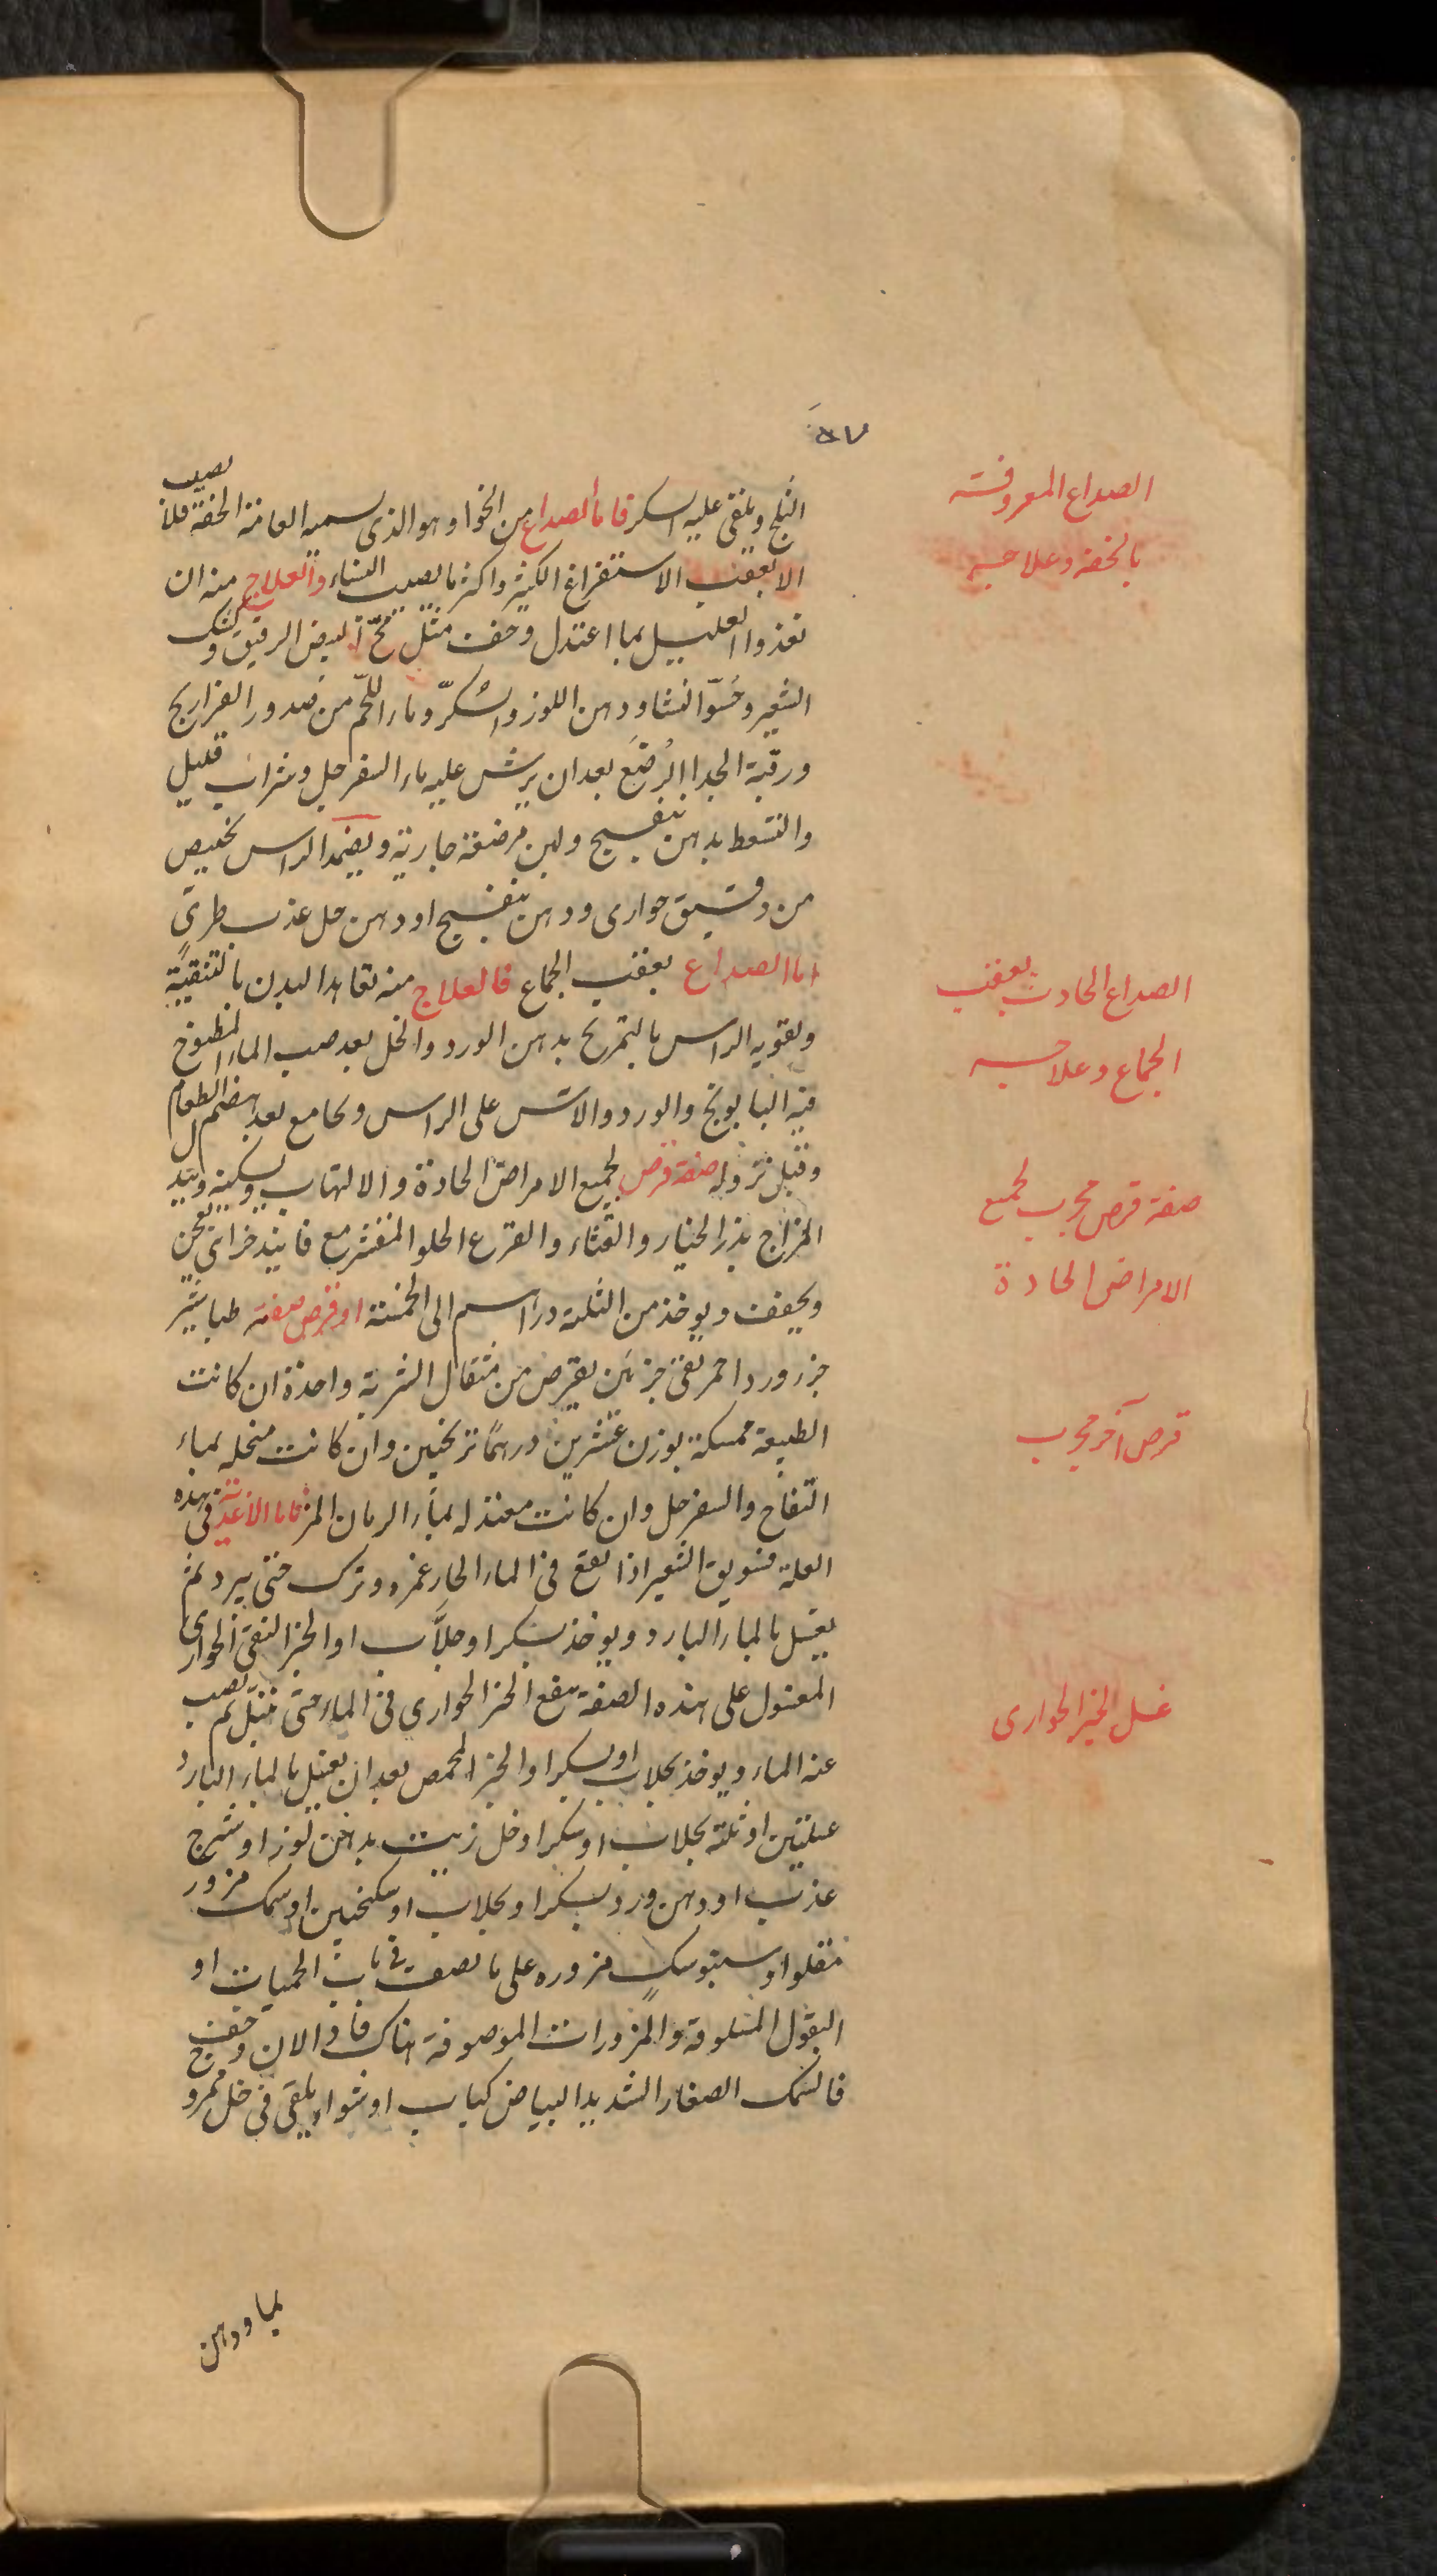 ٥٧
الصداع المعروفة
بالخفة وعلاجه
الثلج ويلقى عليه السكر فاما الصداع من الخوا وهو الذى يسميه العامة الخفة فلا يصيب
الا بعقب الاستفراغ الكثير واكثر ما يصيب النساء والعلاج منه ان
تغذوا العليل بما اعتدل وخف مثل مح البيض الرقيق وكشك
الشعير وحسو النشا ودهن اللوز والسكر وماء اللحم من صدور الفراريج
ورقبة الجدا الرضع بعد ان يرش عليه ماء السفرجل وشراب قليل
والتسعط بدهن بنفسج ولبن مرضعة جارية ويضمد الراس بخبيص
من دقيق حوارى ودهن بنفسج او دهن حل عذب طرى
الصداع الحادث بعقب
الجماع وعلاجه
اما الصداع بعقب الجماع فالعلاج منه تعاهد البدن بالتنقية
وتقوية الراس بالتمريخ بدهن الورد والخل بعد صب الماء المطبوخ
فيه البابونج والورد والاس على الراس ويجامع بعد هضم الطعام
صفة قرص مجرب لجميع
الامراض الحادة
وقبل نزوله صفة قرص لجميع الامراض الحادة والالتهاب ويسكنه ويبرد
المزاج بزر الخيار والقثاء والقرع الحلو المقشر مع فانيد خزائى يعجن
ويجفف ويوخذ من الثلثة دراهم الى الخمسة او قرص صفته طباشير
جزء ورد احمر نقى جزئين يقرص من مثقال الشربة واحدة ان كانت
قرص آخر مجرب
الطبيعة ممسكة بوزن عشرين درهما ترنجبين وان كانت منحله بماء
التفاح والسفرجل وان كانت معتدله بماء الرمان المز فاما الاغذية فى هذه
العلة فسويق الشعير اذا نقع فى الماء الحار غمره وترك حتى يبرد ثم
يغسل بالماء البارد ويوخذ بسكر او جلاب او الخبز النقى الحوارى
غسل الخبز الحوارى
المغسول على هذه الصفة ينقع الخبز الحوارى فى الماء حتى يبتل ثم يصب
عنه الماء ويوخذ بجلاب او بسكر او الخبز المحمص بعد ان يغسل بالماء البارد
غسلتين او ثلثة بجلاب او سكر او خل زيت بدهن لوز او شيرج
عذب او دهن ورد بسكر او بجلاب او سكنجبين او سمك مزور
مقلو او سنبوسك مزوره على ما نصف فى باب الحميات او
البقول المسلوقة والمزورات الموصوفة هناك فاذا الان وخف
فالسمك الصغار الشديد البياض كباب او شواء يلقى فى خل خمر و
بماء ودهن